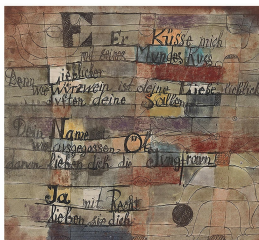 E Er Küsse mich
mit seines Mundes Kuss
Denn Lieblicher
wie Würzwein ist deine Liebe lieblich
deine Salben
Dein Name ist
wie ausgegossen Öl
darum lieben dich die Jungfraun
Ja mit Recht
lieben sie dich